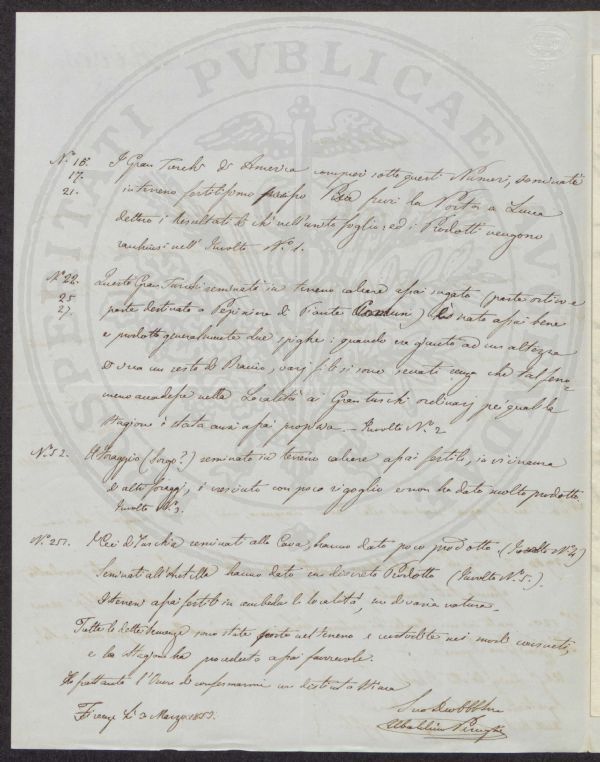 N.º 16. I Gran Turchi di America compresi sotto questi Numeri, seminati
17. in terreno fertilissimo presso Pisa fuori la Porta a Lucca
21. dettero i resultati di che nell'unito foglio: ed i Prodotti vengono
racchiusi nell' Involto Nº. 1.
Nº 22. Questi Gran Turchi seminati in terreno calcare assai sugato (parte ortivo e
25 parte destinato a Pepiniere di Piante) nato assai bene
27. e prodotto generalmente due spighe: quando era giunto ad un'altezza
di circa un sesto di Braccio, varj si sono seccati senza che tal feno-
meno accadesse nella Località ai Gran turchi ordinarj pei quali la
stagione è stata assai propizia. — Involto Nº. 2
Nº. 52. Il foraggio (Sorgo?) seminato in terreno calcare assai fertile, in vicinanza
di altri foraggi, è cresciuto con poco rigoglio e non ha dato molto prodotto
Involto Nº. 3.
Nº. 251. I Ceci di Turchia seminati alla Cava, hanno dato poco prodotto (Involto Nº 4)
Seminati all' hanno dato un discreto Prodotto (Involto Nº. 5.)
I terreni assai fertili in ambedue le località, ma di varia natura.
Tutte le dette semenze sono state poste nel terreno e custodite nei modi consueti,
e la stagione ha proceduto assai favorevole.
Ho frattanto l'Onore di confermarmi con distinta stima
Firenze Li 3 Marzo 1855.
Suo
Ubaldino Peruzzi
PVBLICAE